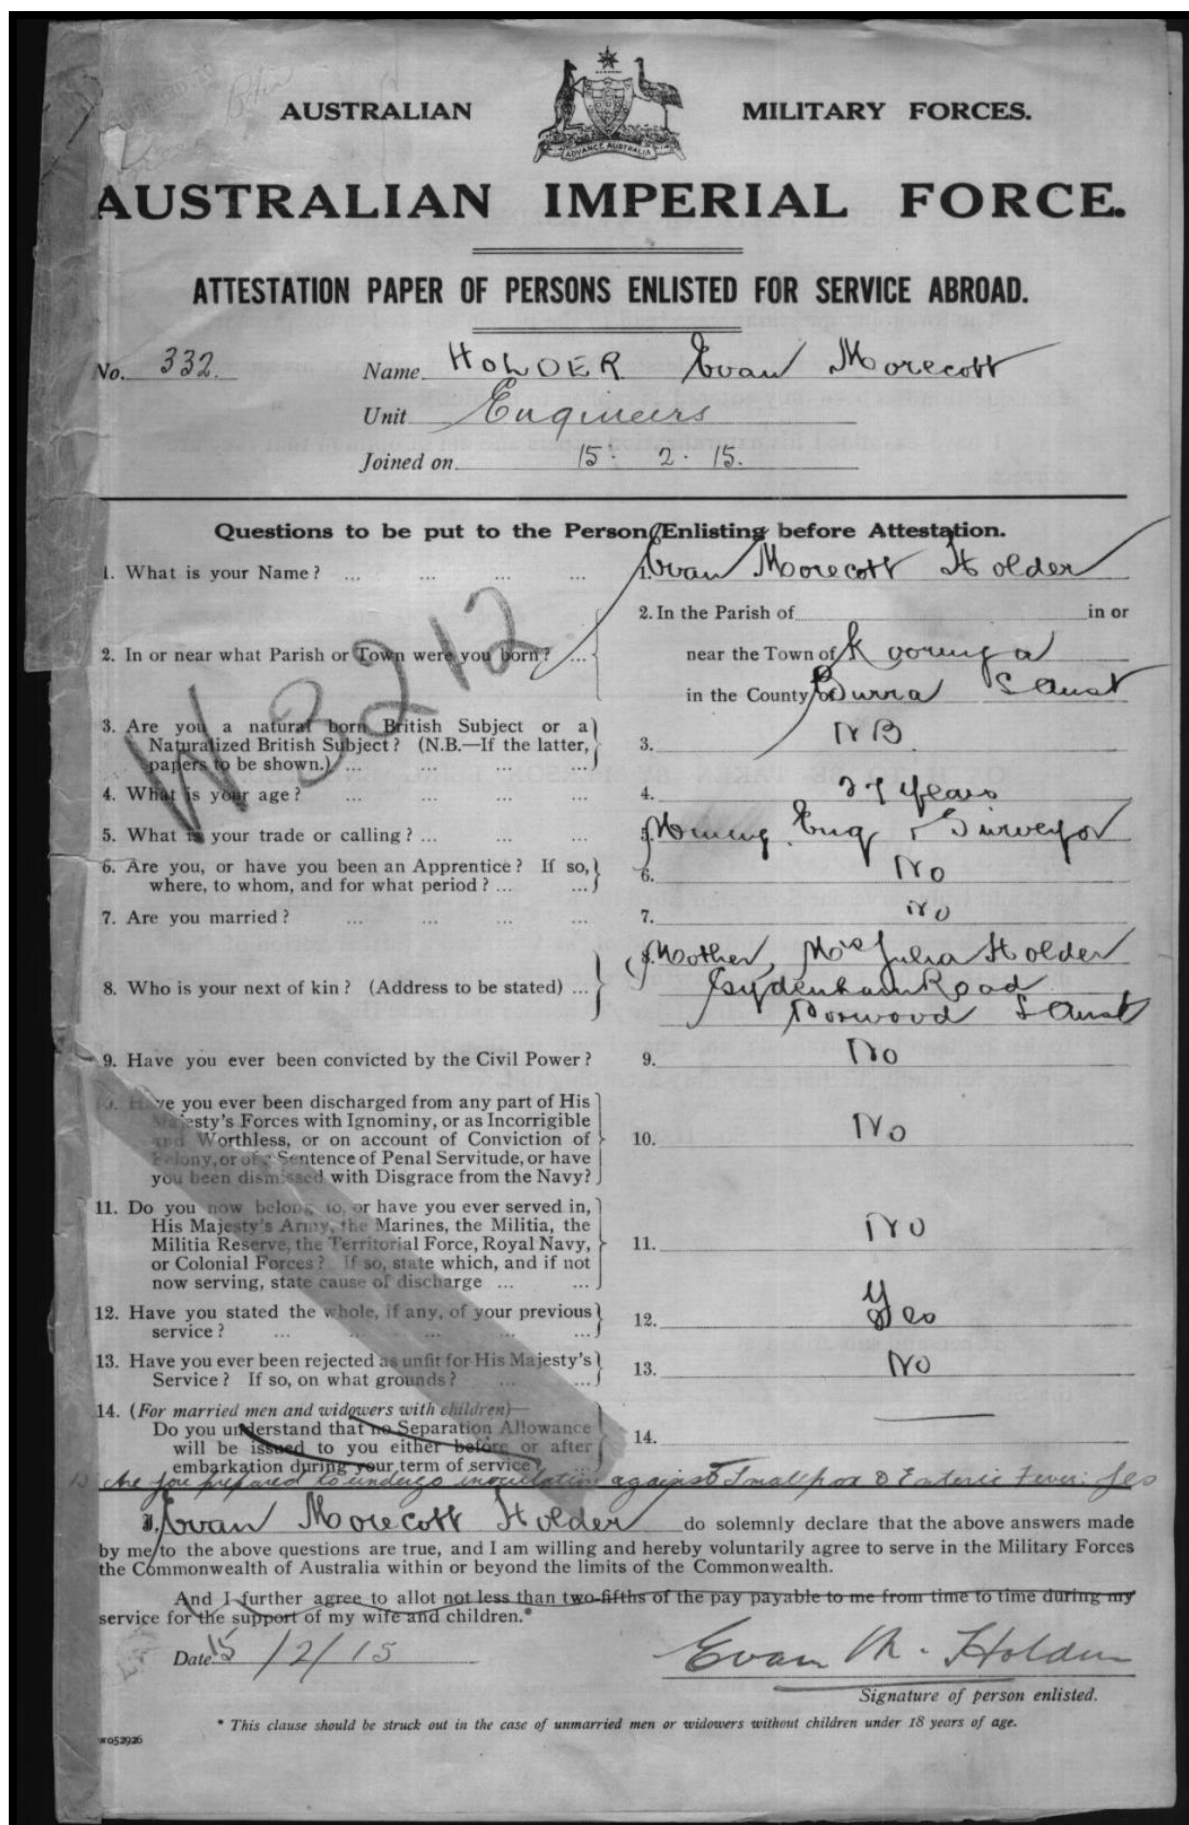 AUSTRALIAN MILITARY FORCES.
ADVANCE AUSTRALIA
AUSTRALIAN IMPERIAL FORCE.
ATTESTATION PAPER OF PERSONS ENLISTED FOR SERVICE ABROAD.
No. 332. Name HOLDER Evan Morecott
Unit Engineers
Joined on 15. 2. 15.
Questions to be put to the Person Enlisting before Attestation.
1. What is your Name? ... ... ... ... 1. Evan Morecott Holder
2. In the Parish of in or
2. In or near what Parish or Town were you born? ... near the Town of Kooringa
in the County of Burra S Aust
W3212
3. Are you a natural born British Subject or a
Naturalized British Subject? (N.B.—If the latter, 3. NB
papers to be shown.) ... ... ... ...
4. What is your age? ... ... ... ... 4. 27 years
5. What is your trade or calling? ... ... ... 5. Mining Eng & Surveyor
6. Are you, or have you been an Apprentice? If so, 6. No
where, to whom, and for what period? ... ...
7. Are you married? ... ... ... ... 7. No
Mother, Mrs Julia Holder
8. Who is your next of kin? (Address to be stated) ... 8. Sydenham Road
Norwood S Aust
9. Have you ever been convicted by the Civil Power? 9. No
10. Have you ever been discharged from any part of His
Majesty's Forces with Ignominy, or as Incorrigible
and Worthless, or on account of Conviction of 10. No
Felony, or of a Sentence of Penal Servitude, or have
you been dismissed with Disgrace from the Navy?
11. Do you now belong to, or have you ever served in,
His Majesty's Army, the Marines, the Militia, the
Militia Reserve, the Territorial Force, Royal Navy, 11. No
or Colonial Forces? If so, state which, and if not
now serving, state cause of discharge ... ...
12. Have you stated the whole, if any, of your previous 12. Yes
service? ... ... ... ... ...
13. Have you ever been rejected as unfit for His Majesty's 13. No
Service? If so, on what grounds? ... ...
14. (For married men and widowers with children)—
Do you understand that no Separation Allowance
will be issued to you either before or after 14. —
embarkation during your term of service? ...
15 Are you prepared to undergo inoculation against Smallpox & Enteric Fever: Yes
I, Evan Morecott Holder do solemnly declare that the above answers made
by me to the above questions are true, and I am willing and hereby voluntarily agree to serve in the Military Forces
the Commonwealth of Australia within or beyond the limits of the Commonwealth.
And I further agree to allot not less than two-fifths of the pay payable to me from time to time during my
service for the support of my wife and children.*
Date 15/2/15 Evan M. Holder
Signature of person enlisted.
* This clause should be struck out in the case of unmarried men or widowers without children under 18 years of age.
W052926